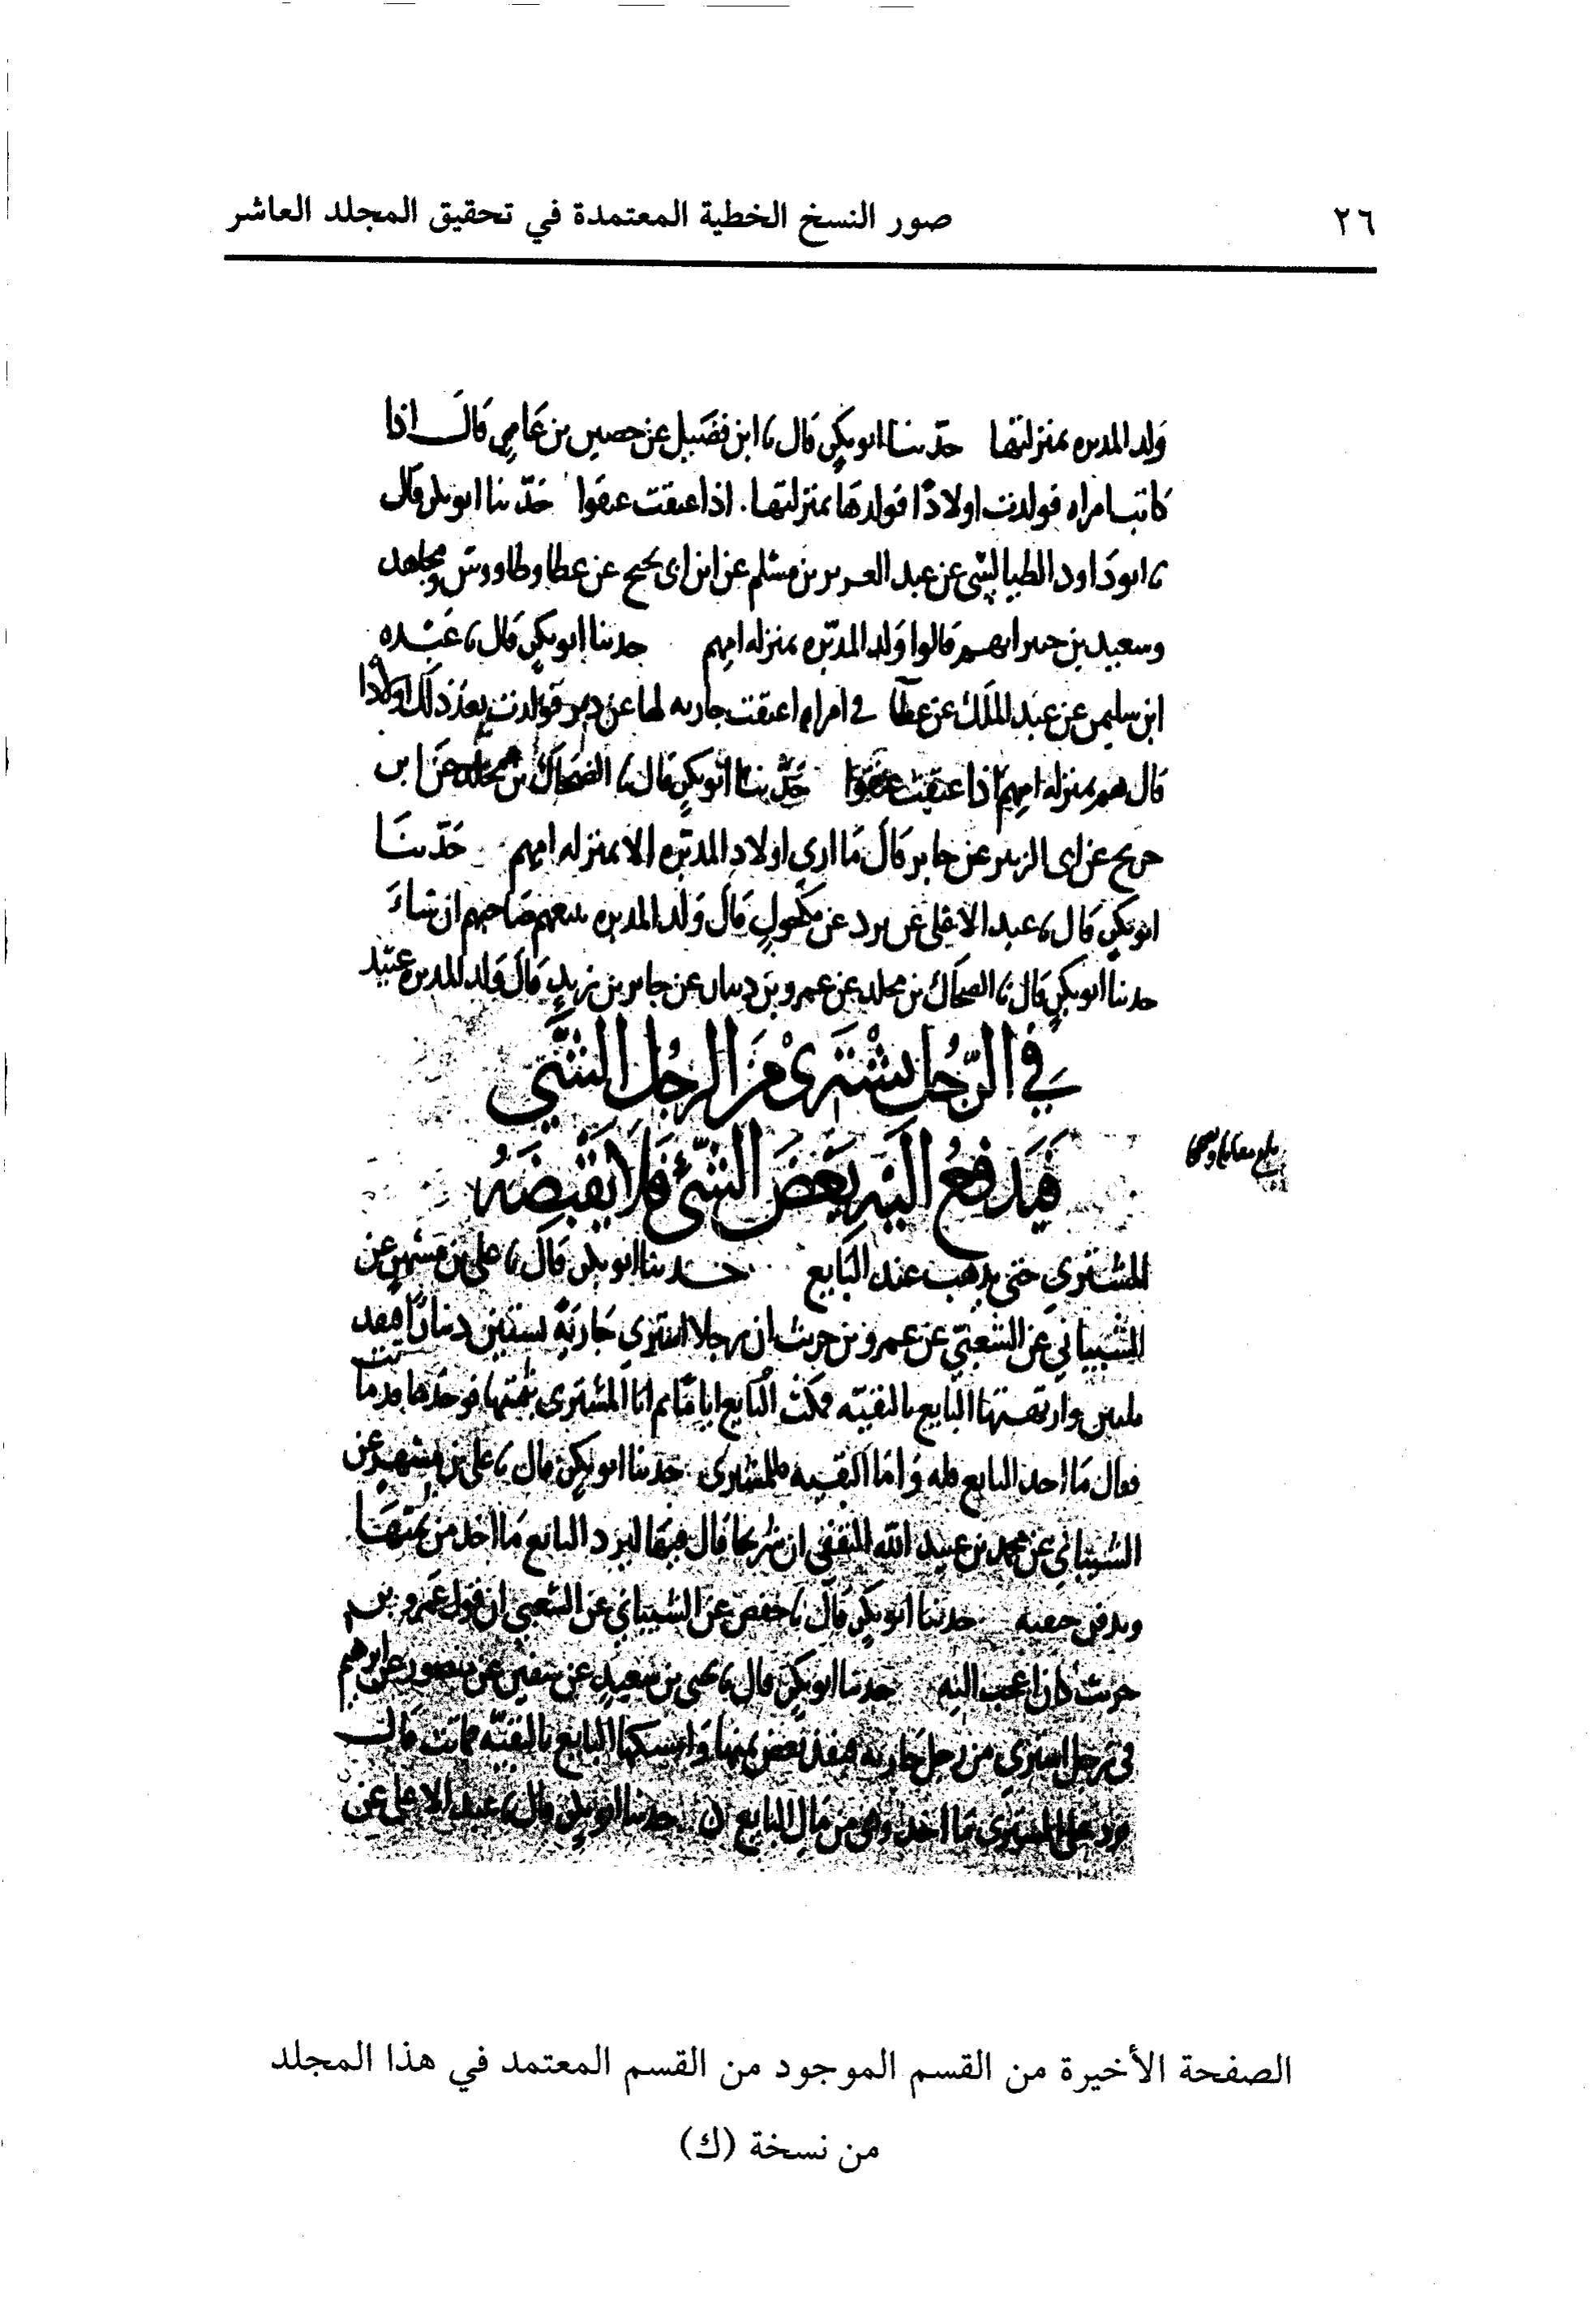 ٢٦
صور النسخ الخطية المعتمدة في تحقيق المجلد العاشر
ولد المدبره بمنزلتها حدثنا ابو بكر قال نا ابن فضيل عن حصين بن عامر قال اذا
كاتب امراه فولدت اولادًا فولدها بمنزلتها. اذا عتقت عتقوا حدّثنا ابو بكر قال
نا ابو داود الطيالسي عن عبد العزيز بن مسلم عن ابن ابي نجيح عن عطا وطاووس ومجاهد
وسعيد بن جبير انهم قالوا ولد المدبّره بمنزله امهم حدثنا ابو بكر قال نا عبده
ابن سليمن عن عبد الملك عن عطا في امراه اعتقت جاريه لها عن دبر فولدت بعد ذلك اولادا
قال هم بمنزله امهم اذا عتقت عتقوا حدّثنا ابو بكر قال نا الضحاك بن مخلد عن ابن
جريج عن ابي الزبير عن جابر قال ما اري اولاد المدبّره الا بمنزله امهم حدّثنا
ابو بكر قال نا عبد الاعلي عن برد عن مكحول قال ولد المدبره يبيعهم صاحبهم ان شاء
حدثنا ابو بكر قال نا الضحاك بن مخلد عن عمرو بن دينار عن جابر بن زيد قال ولد المدبره عبيد
في الرّجل يشتري من الرجل الشي
فيدفع اليه بعض الشئ فلا يقبضه
المشتري حتي يذهب عند البايع حدثنا ابو بكر قال نا علي بن مسهر عن
الشيباني عن الشعبي عن عمرو بن حريث ان رجلا اشتري جارية بستين دينارًا فنقد
البايع بالبقيه فمكث البايع اياما ثم اتا المشتري بثمنها فوجدها قد ماتت
فقال ما اخذ البايع فله واما البقيه فللمشتري حدثنا ابو بكر قال نا علي بن مسهر عن
الشيباني عن محمد بن عبيد الله الثقفي ان شريحا قال فيها ليرد البايع ما اخذ من ثمنها
ويدفن جيفته حدثنا ابو بكر قال نا حفص عن الشيباني عن الشعبي ان قول عمرو بن
حريث كان اعجب اليه حدثنا ابو بكر قال نا يحيي بن سعيد عن سفين عن منصور عن ابرهيم
في رجل اشتري من رجل جاريه فنقد بعض ثمنها وامسكها البايع بالبقيّه فماتت قال
يرد علي المشتري ما اخذ وهي من مال البايع حدثنا ابو بكر قال نا عبد الاعلي عن
الصفحة الأخيرة من القسم الموجود من القسم المعتمد في هذا المجلد
من نسخة (ك)